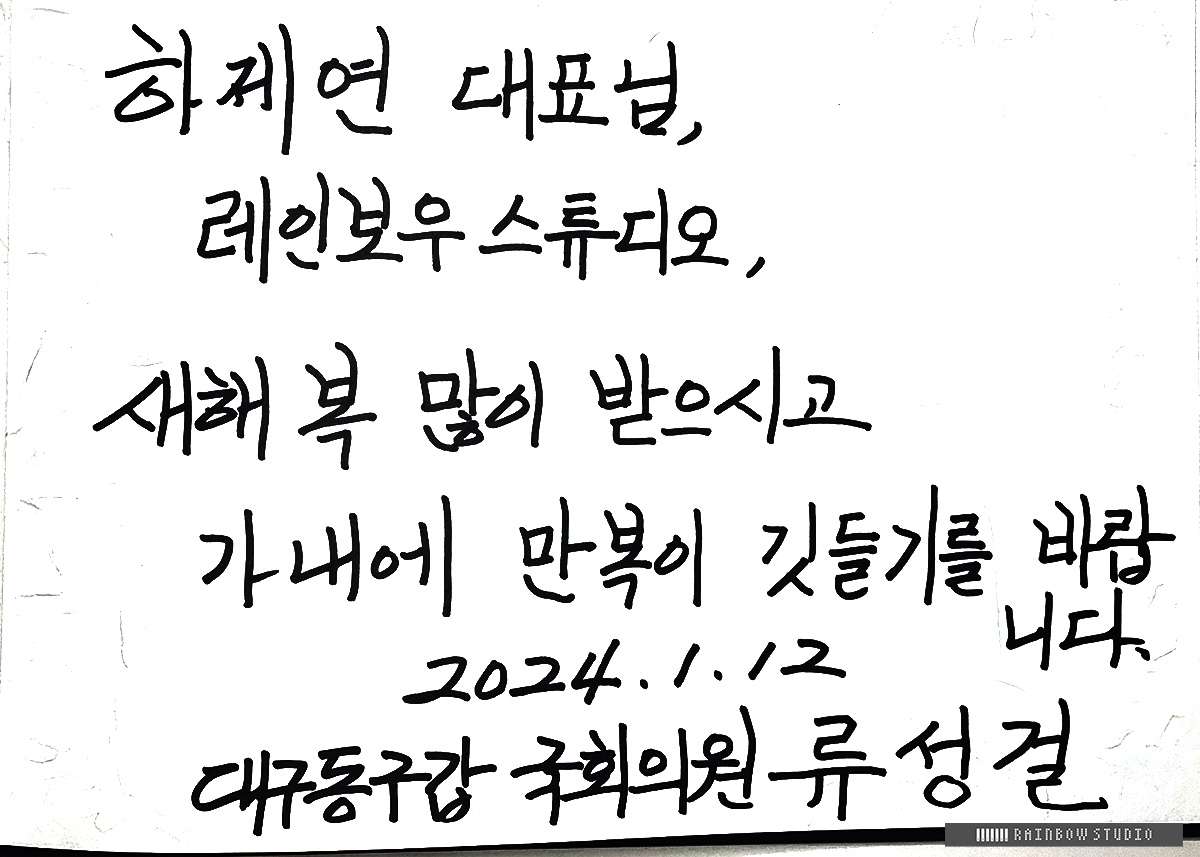 하제연 대표님,
레인보우 스튜디오,
새해 복 많이 받으시고
가내에 만복이 깃들기를 바랍
니다.
2024.1.12
대구동구갑 국회의원 류성걸
RAINBOW STUDIO